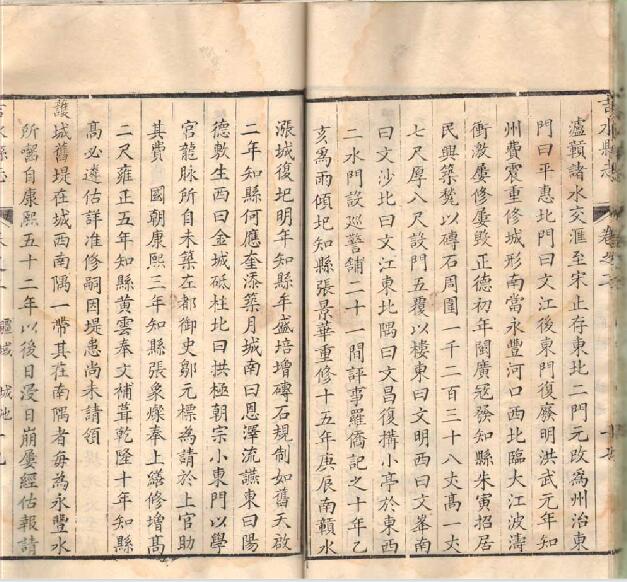 吉水縣志 卷之二
瀘贛諸水交滙至宋止存東北二門元改為州治東
門曰平惠北門曰文江後東門復廢明洪武元年知
州費震重修城形南當永豐河口西北臨大江波濤
衝激屢修屢毀正德初年閩廣冦知縣朱寅招居
民興築甃以磚石周圍一千二百三十八丈髙一丈
七尺厚八尺設門五覆以樓東曰文明西曰文華南
曰文沙北曰文江東北隅曰文昌復搆小亭於東西
二水門設廵警舖二十一間評事羅僑記之十年乙
亥為雨傾圮知縣張景華重修十五年庚辰南贛水
漲城復圮明年知縣年盛培增磚石規制如舊天啟
二年知縣何應奎添築月城南曰恩澤流讌東曰陽
德敷生西曰金城砥柱北曰拱極朝宗小東門以學
官龍脉所自未築左都御史鄒元標為請於上官助
其費 國朝康熙三年知縣張象燦奉上繕修增髙
二尺雍正五年知縣黃雲奉文補葺乾隆十年知縣
髙必遴估詳准修嗣因堤患尚未請領
護城舊堤在城西南隅一帶其在南隅者毎為永豐水
所嚙自康熙五十二年以後日浸日崩屢經估報請
吉水縣志 卷之二 疆域 城池 十九